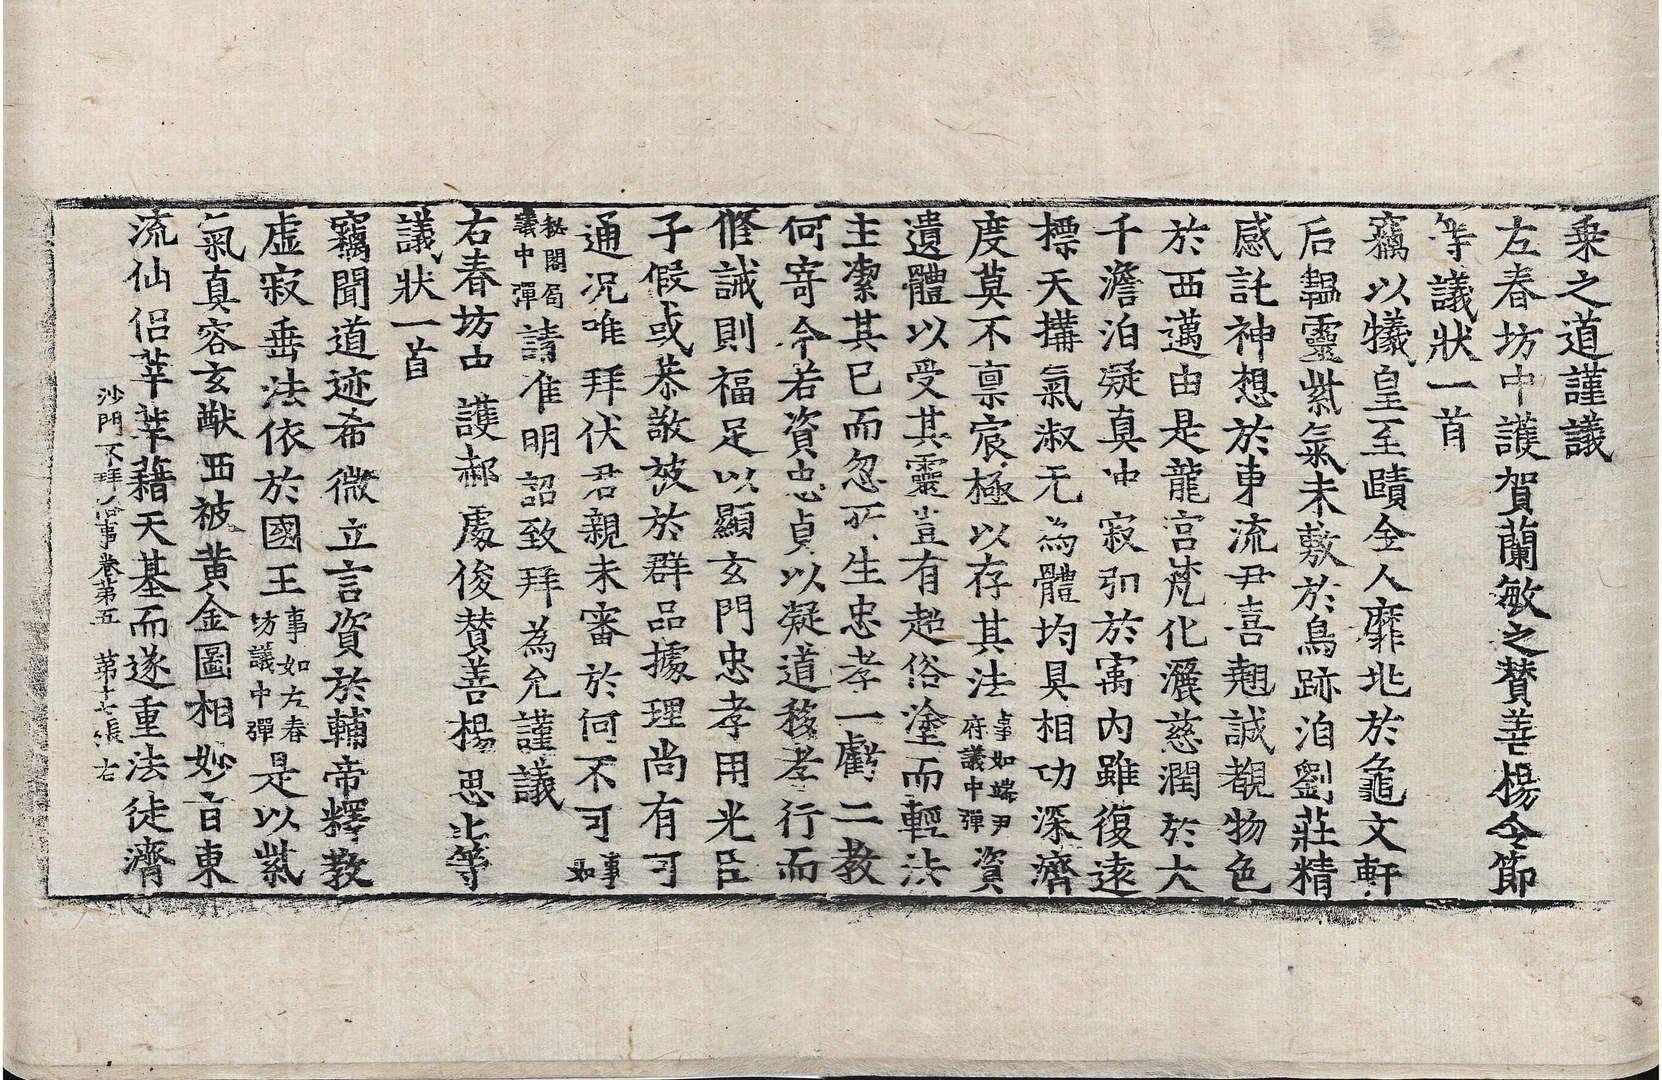 乗之道謹議
左春坊中護賀蘭敏之賛善楊令節
等議狀一首
竊以犠皇至賾金人靡兆於龜文軒
后韞靈紫氣未敷於鳥跡洎劉莊精
感託神想於東流尹喜翹誠覩物色
於西邁由是龍宫梵化灑慈潤於大
千澹泊凝真冲寂弘於寓内雖復逺
摽天構氣淑无為體均具相功深濟
度莫不禀宸極以存其法事如端尹府議中彈資
遺體以受其靈豈有超俗塗而輕法
主潔其已而忽所生忠孝一虧二教
何寄今若資忠貞以凝道移孝行而
修誡則福足以顯玄門忠孝用光臣
子假或恭敬被於群品據理尚有可
通况唯拜伏君親未審於何不可事如
秘閣局議中彈請准明詔致拜為允謹議
右春坊中護郝處俊賛善楊思止等
議狀一首
竊聞道迹希微立言資於輔帝釋教
虚寂垂法依於國王事如左春坊議中彈是以紫
氣真容玄猷西被黄金圖相妙言東
流仙侣莘莘藉天基而遂重法徒濟
沙門不拜俗事卷第五 第十七張 右